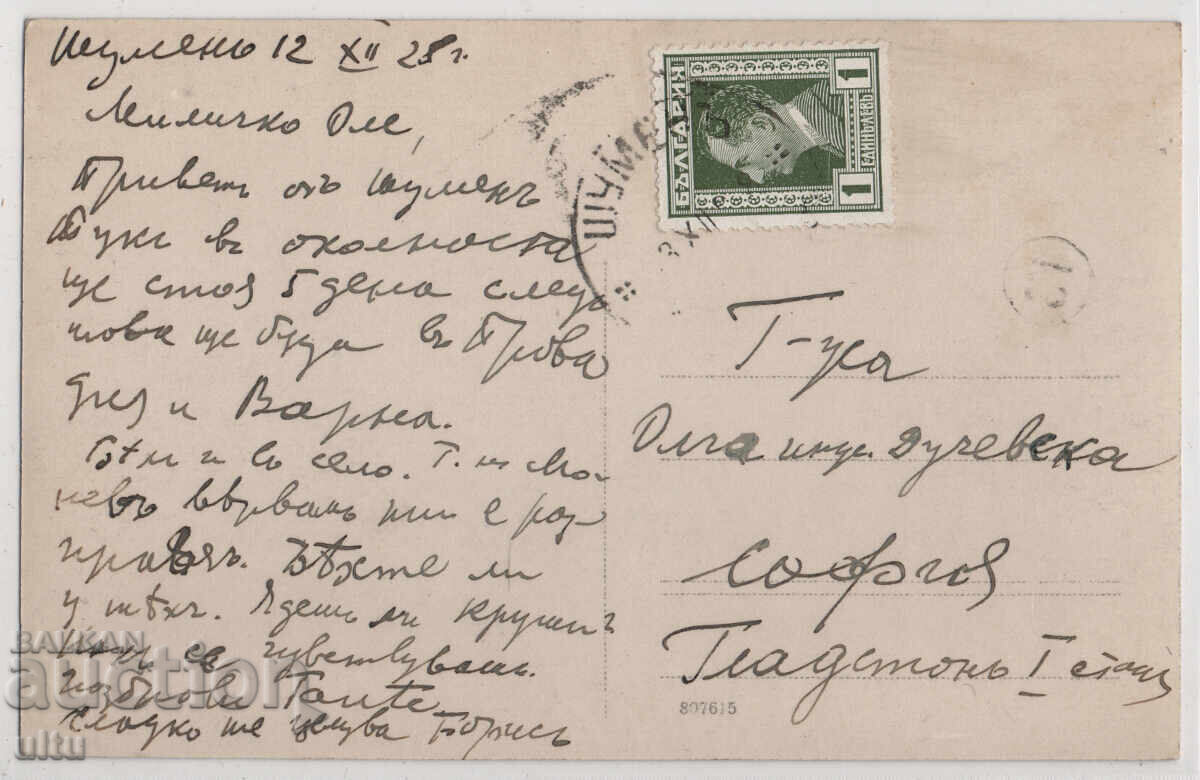 Шуменъ 12 XII 28 г.
Миличко Оле,
Приветъ отъ Шуменъ
Тукъ въ околността
ще стоя 5 дена следъ
това ще бъда въ Прова
дия и Варна.
Бѣхъ и въ село. Г-нъ Мо-
невъ вървамъ ни е раз
правялъ. Бѣхте ли
у тѣхъ. Ядешъ ли круши
се чувствувашъ.
Сладко те целува Борисъ
ШУМЕ
XII
БЪЛГАРИЯ
1 ЕДИНЪ ЛЕВЪ 1
Г-жа
Олга инж. Дучевска
София
Гладстонъ I
807615
BALKAN
auction
ultu